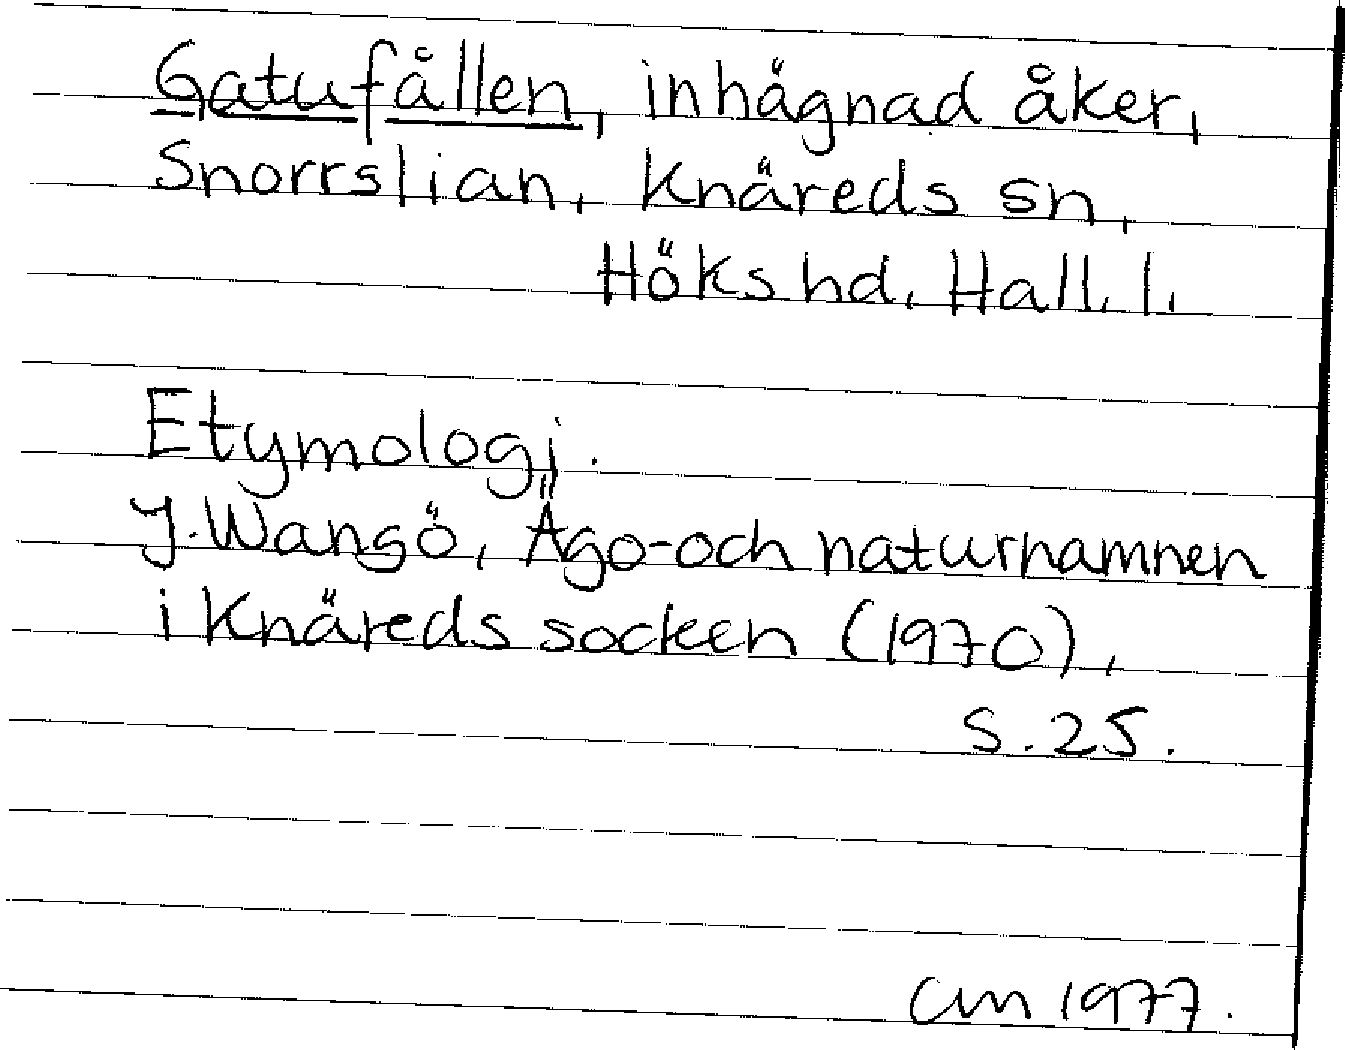 Gatufållen, inhägnad åker,
Snorrslian, Knäreds sn,
Höks hd, Hall. l.
Etymologi.
J. Wangö, Ägo- och naturnamnen
i Knäreds socken (1970),
S. 25.
CIM 1977.